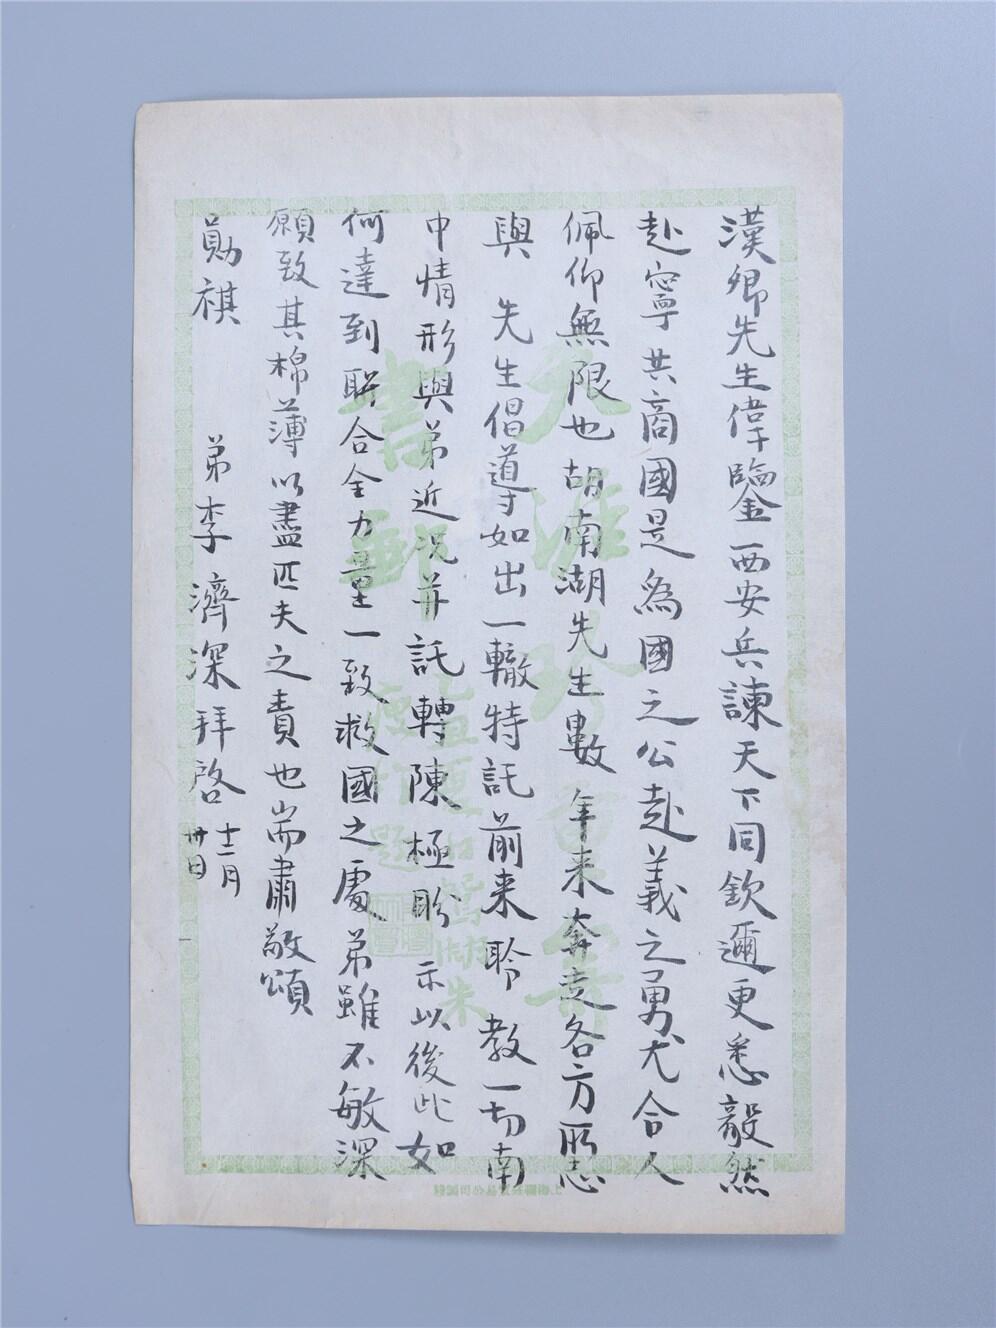 漢卿先生偉鑒西安兵諫天下同欽邇更悉毅然
赴寧共商國是為國之公赴義之勇尤令人
佩仰無限也胡南湖先生數年来奔走各方所志
與 先生倡導如出一轍特託前来聆 教一切南
中情形與弟近况并託轉陳極盼 示以後此如
何達到聯合全力量一致救國之處弟雖不敏深
願致其棉薄以盡匹夫之責也耑肅敬頌
勛祺 弟李濟深拜啓 十二月
卅日